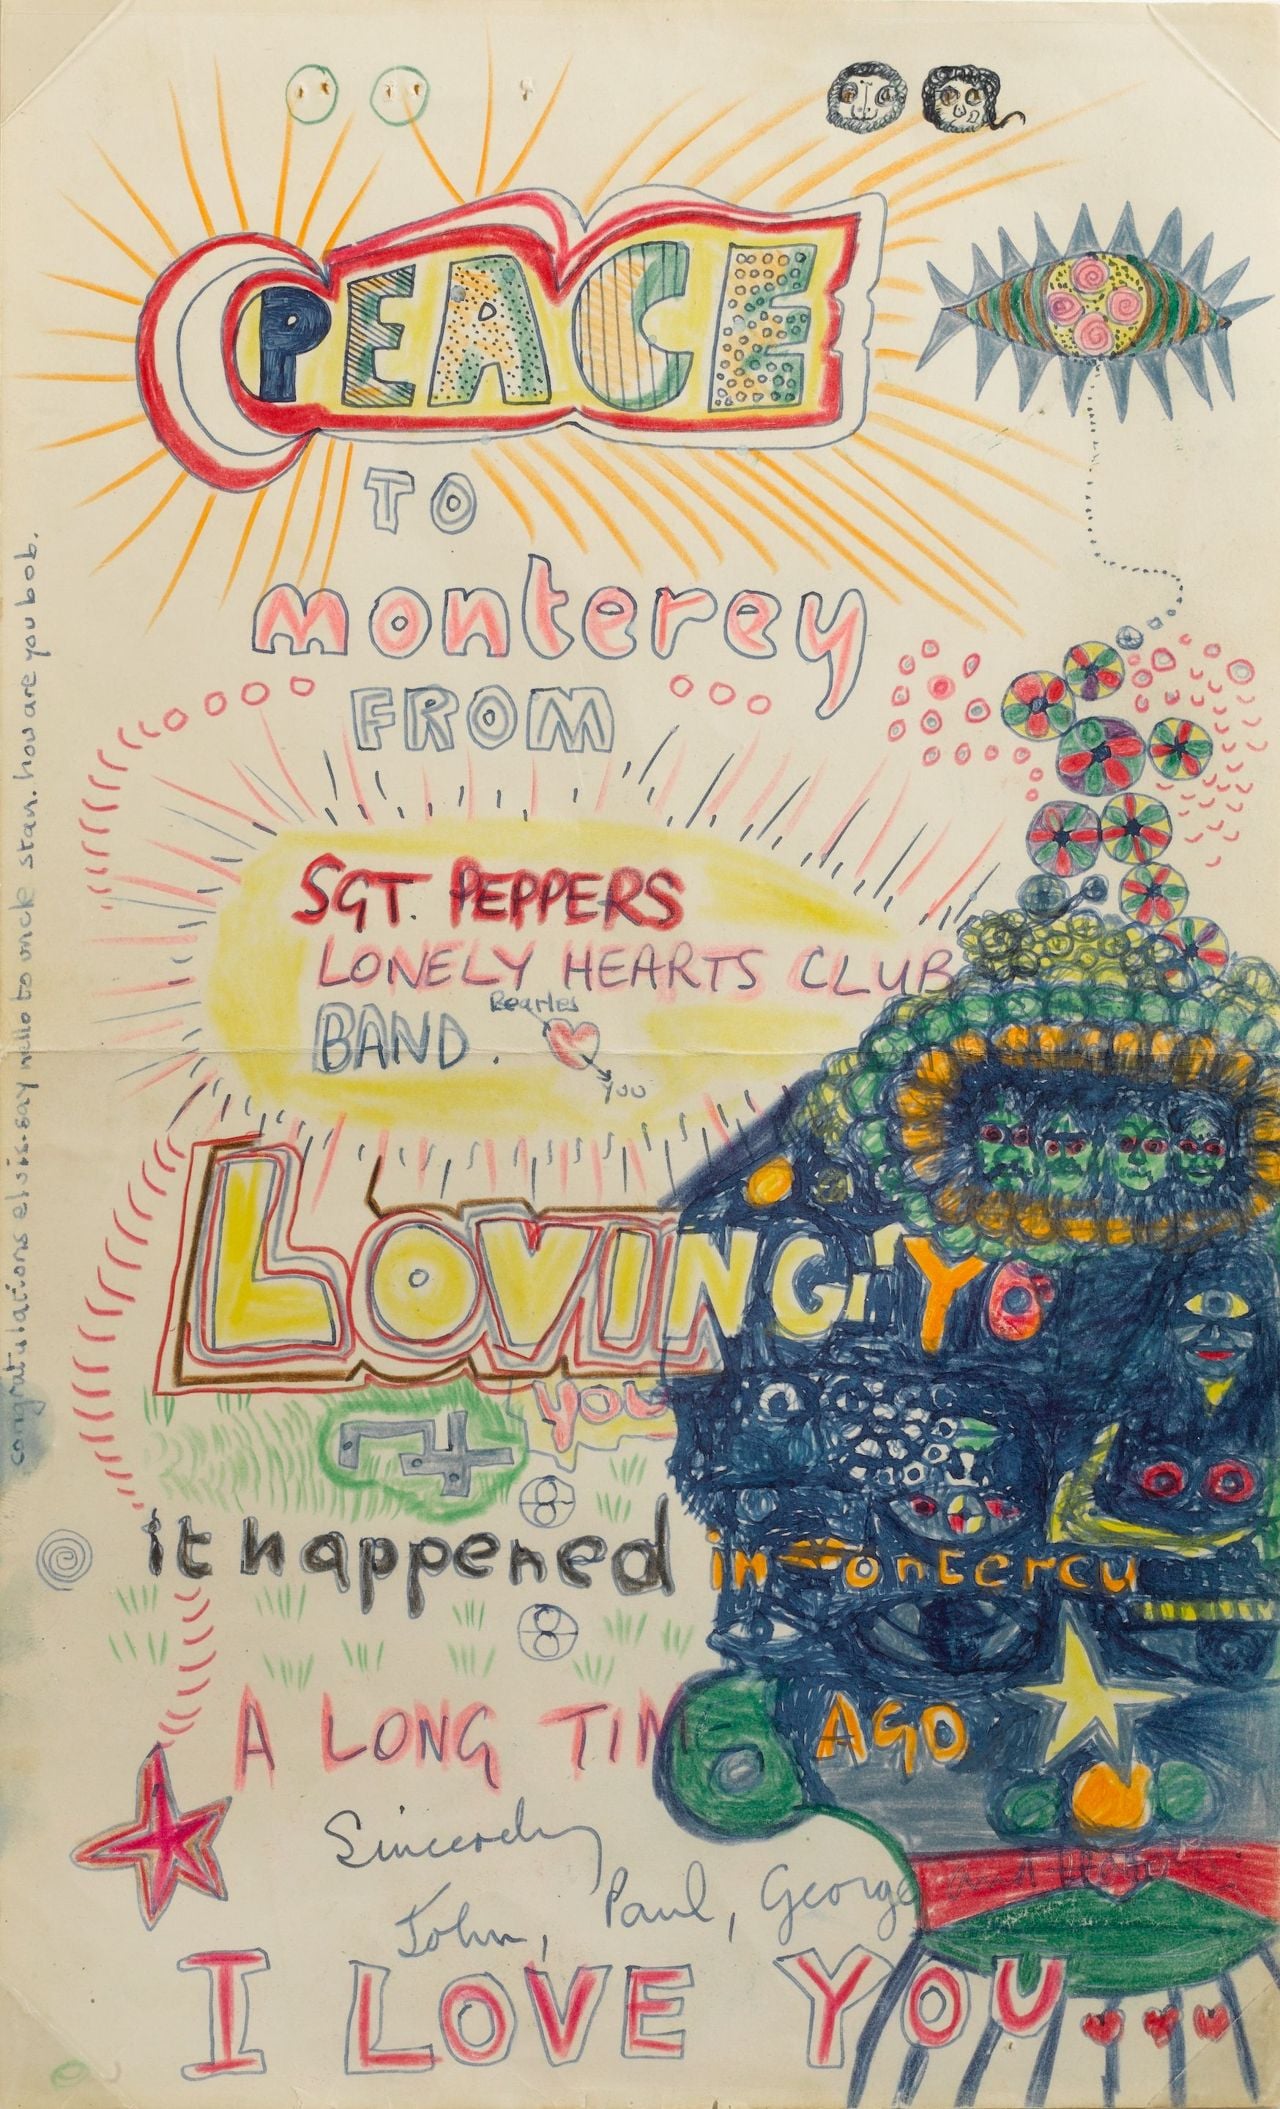 PEACE
TO
monterey
FROM
SGT. PEPPERS
LONELY HEARTS CLUB
BAND.
Beatles
YOU
LOVING YO
you
it happened in monterey
A LONG TIME AGO
Sincerely
John, Paul, George and
I LOVE YOU...
congratulations elvis. say hello to uncle stan. how are you bob.